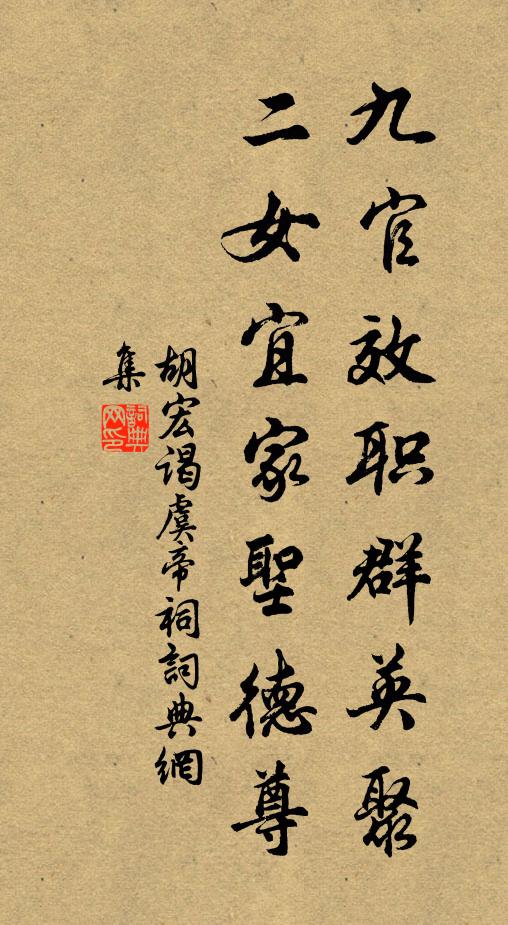 九官效职群英聚
二女宜家聖德尊
胡宏谒虞帝祠詞典網
集
詞典网印